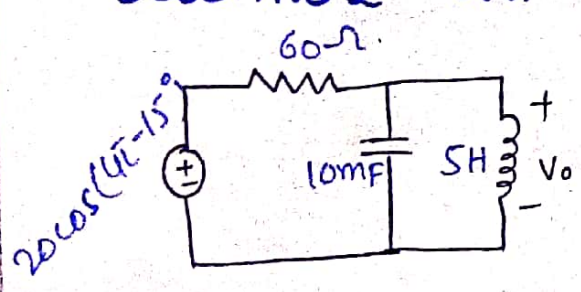 60Ω.
20cos(4t-15°
+
-
10mF
5H
+
Vo
-